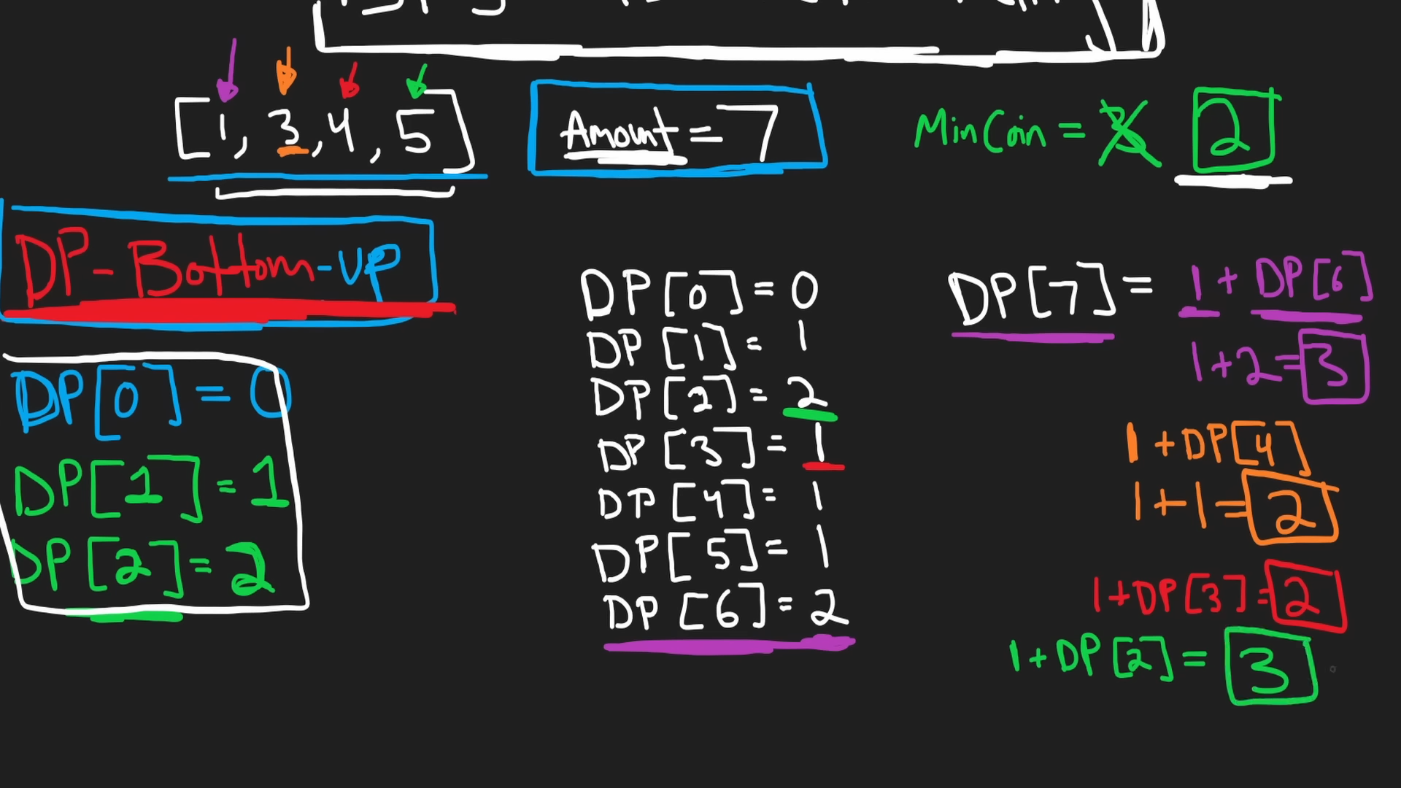 [1, 3, 4, 5]
Amount = 7
MinCoin = 3 2
DP - Bottom-UP
DP[0] = 0
DP[1] = 1
DP[2] = 2
DP[0] = 0
DP[1] = 1
DP[2] = 2
DP[3] = 1
DP[4] = 1
DP[5] = 1
DP[6] = 2
DP[7] = 1 + DP[6]
1+2=3
1+DP[4]
1+1=2
1+DP[3]=2
1+DP[2] = 3